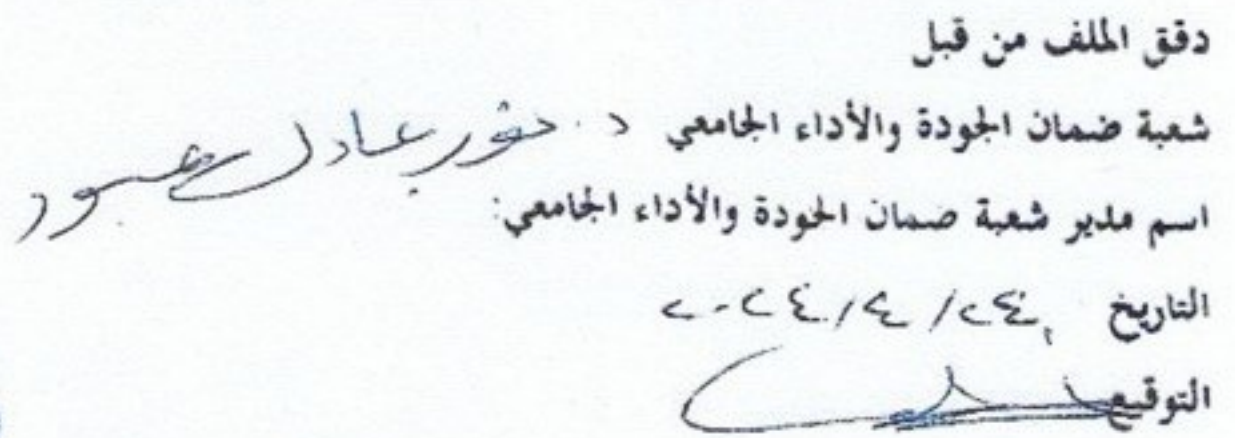 دقق الملف من قبل
شعبة ضمان الجودة والأداء الجامعي د. نور عادل عبود
اسم مدير شعبة ضمان الجودة والأداء الجامعي:
التاريخ ٢٤/٤/٢٠٢٤
التوقيع